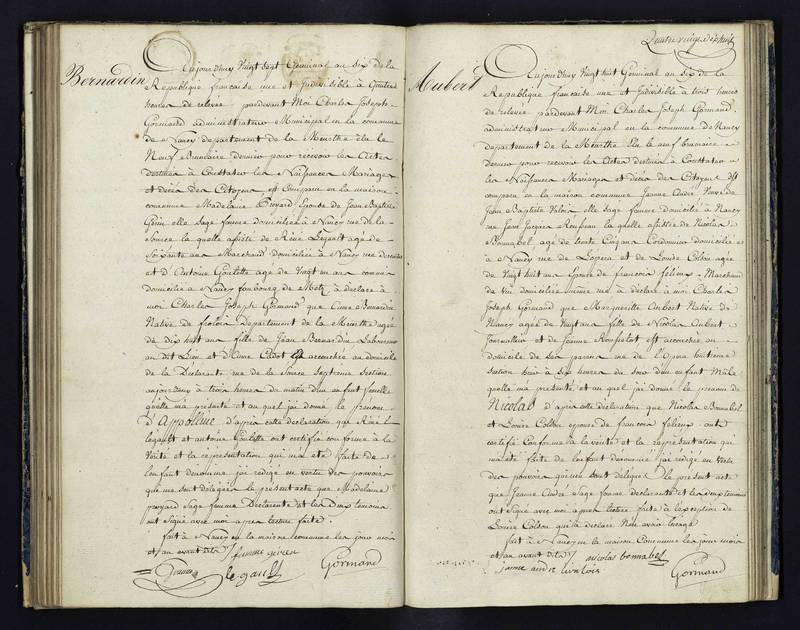 Bernardin
Aujourd'huy Vingt Sept Germinal an Six de la
Republique francaise une et Indivisible à Quatre
heures de relevée pardevant Moi Charles Joseph
Gormand administrateur Municipal en la commune
de Nancy departement de la Meurthe Elu le
Neuf Brumaire dernier pour recevoir les Actes
destinés à Constater les Naissances Mariages
et décès des Citoyens, est Comparu en la maison
commune Madelaine Poyard Epouse de Jean Baptiste
Gérin elle Sage femme domiciliée à Nancy rue de la
Source la quelle assisté de René Legault agé de
Soixante ans Marchand domicilié à Nancy rue
et d'Antoine Goulette agé de Vingt un ans commis
domicilié a Nancy faubourg de Metz à déclaré à
moi Charles Joseph Gormand que Anne Bernardin
Native de frolois Departement de la Meurthe agée
de dix huit ans fille de Jean Bernardin Laboureur
au dit Lieu et d'Anne Cadot est accouchée au domicile
de la Déclarante rue de la Source Septieme Section
aujourd'huy à trois heures du matin d'un enfant femelle
qu'elle m'a présenté et au quel j'ai donné le prénom
d'Appoline d'après cette déclaration que René
Legault et antoine Goulette ont certifié conforme à la
Vérité et la réprésentation qui m'a eté faite de
l'enfant denommé j'ai rédigé en vertu des pouvoirs
qui me sont délégués le présent acte que Madelaine
poyard Sage femme Déclarante et les Deux temoins
ont Signé avec moi apres lecture faite.
fait à Nancy en la maison commune les jour mois
et an avant dits /. femme gérin
le gault Gormand
Quatre vingt dix huit
Aubert
Aujourd'huy Vingt huit Germinal an Six de la
Republique française une et Indivisible à trois heures
de relevée pardevant Moi Charles Joseph Gormand
administrateur Municipal en la commune de Nancy
departement de la Meurthe Elu le neuf brumaire
dernier pour recevoir les Actes destinés à Constater
les Naissances Mariages et décès des Citoyens est
comparu en la maison commune Jeanne André Veuve de
Jean Baptiste Valois elle Sage femme domiciliée à Nancy
rue Jean Jacques Rousseau la quelle assistée de Nicolas
Bonnabel agé de trente Cinq ans Cordonnier domicilié
à Nancy rue de l'opera et de Louise Colson agée
de Vingt huit ans Epouse de francois felieux Marchand
de Vin domiciliée même rue à déclaré à moi Charles
Joseph Gormand que Margueritte Aubert Native de
Nancy agée de Vingt ans fille de Nicolas Aubert
Journallier et de Jeanne est accouchée au
domicile de ses parens rue de l'Opera huitieme
Section hier à six heures du soir d'un enfant Mâle
qu'elle m'a présenté et au quel j'ai donné le prénom de
Nicolas d'après cette déclaration que Nicolas Bonnabel
et Louise Colson epouse de francois felieux ont
certifié Conforme à la Vérité et la représentation qui
m'a été faite de l'enfant dénommé j'ai rédigé en vertu
des pouvoirs qui me sont délégués le présent acte
que Jeanne André Sage femme declarante et les deux temoins
ont Signé avec moi apres lecture faite à l'exception de
Louise Colson qui a declaré n'en avoir l'usage
fait à Nancy en la maison Commune les jour mois
et an avant dits /. nicolas bonnabel
jeanne andré Gormand